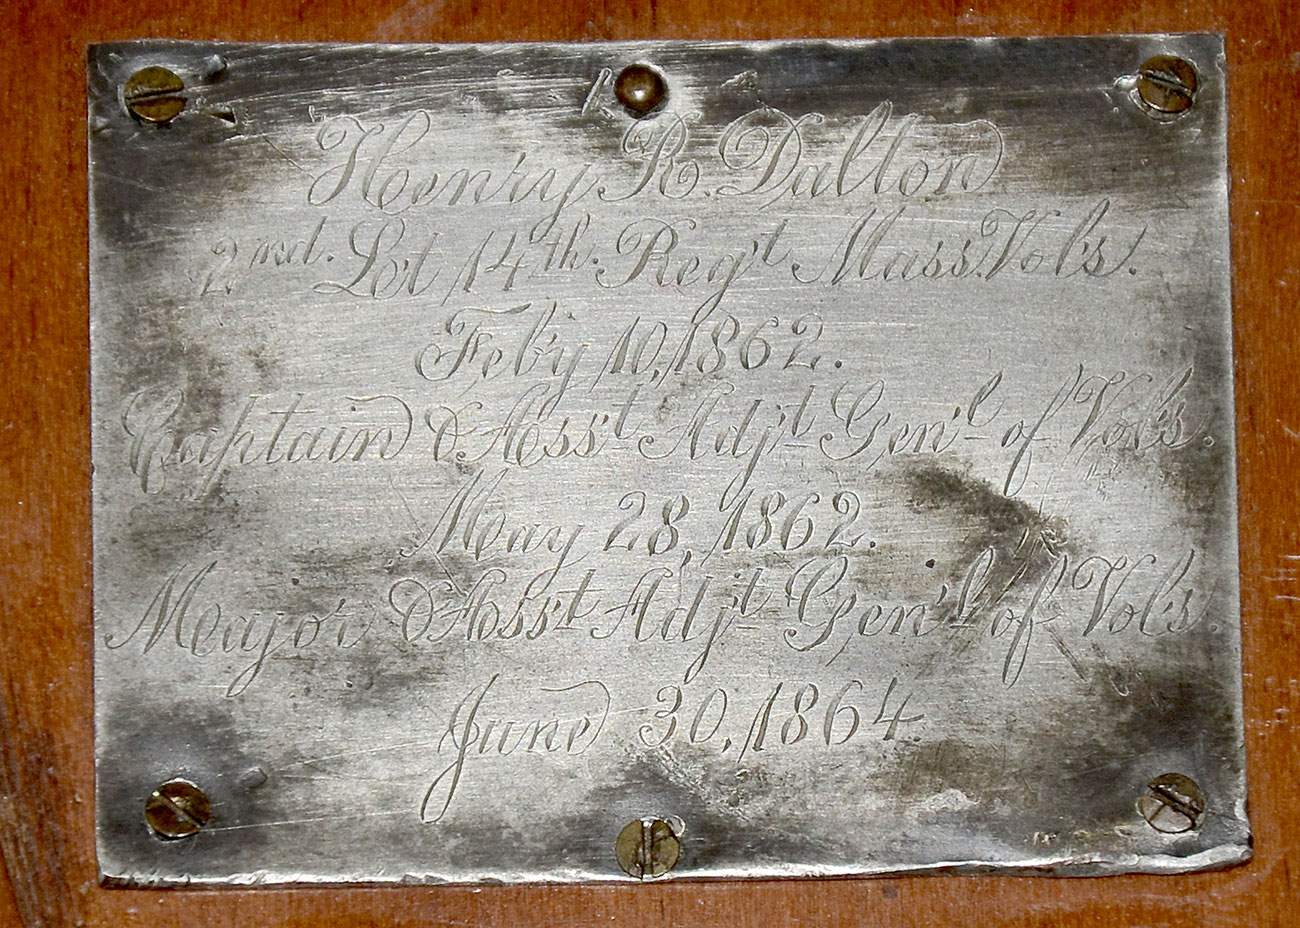 Henry R. Dalton
2nd. Lot 14th. Regt Mass. Vols.
Feb'y 10, 1862.
Captain & Asst Adjt Gen'l of Vols.
May 28, 1862.
Major & Asst Adjt Gen'l of Vols.
June 30, 1864.